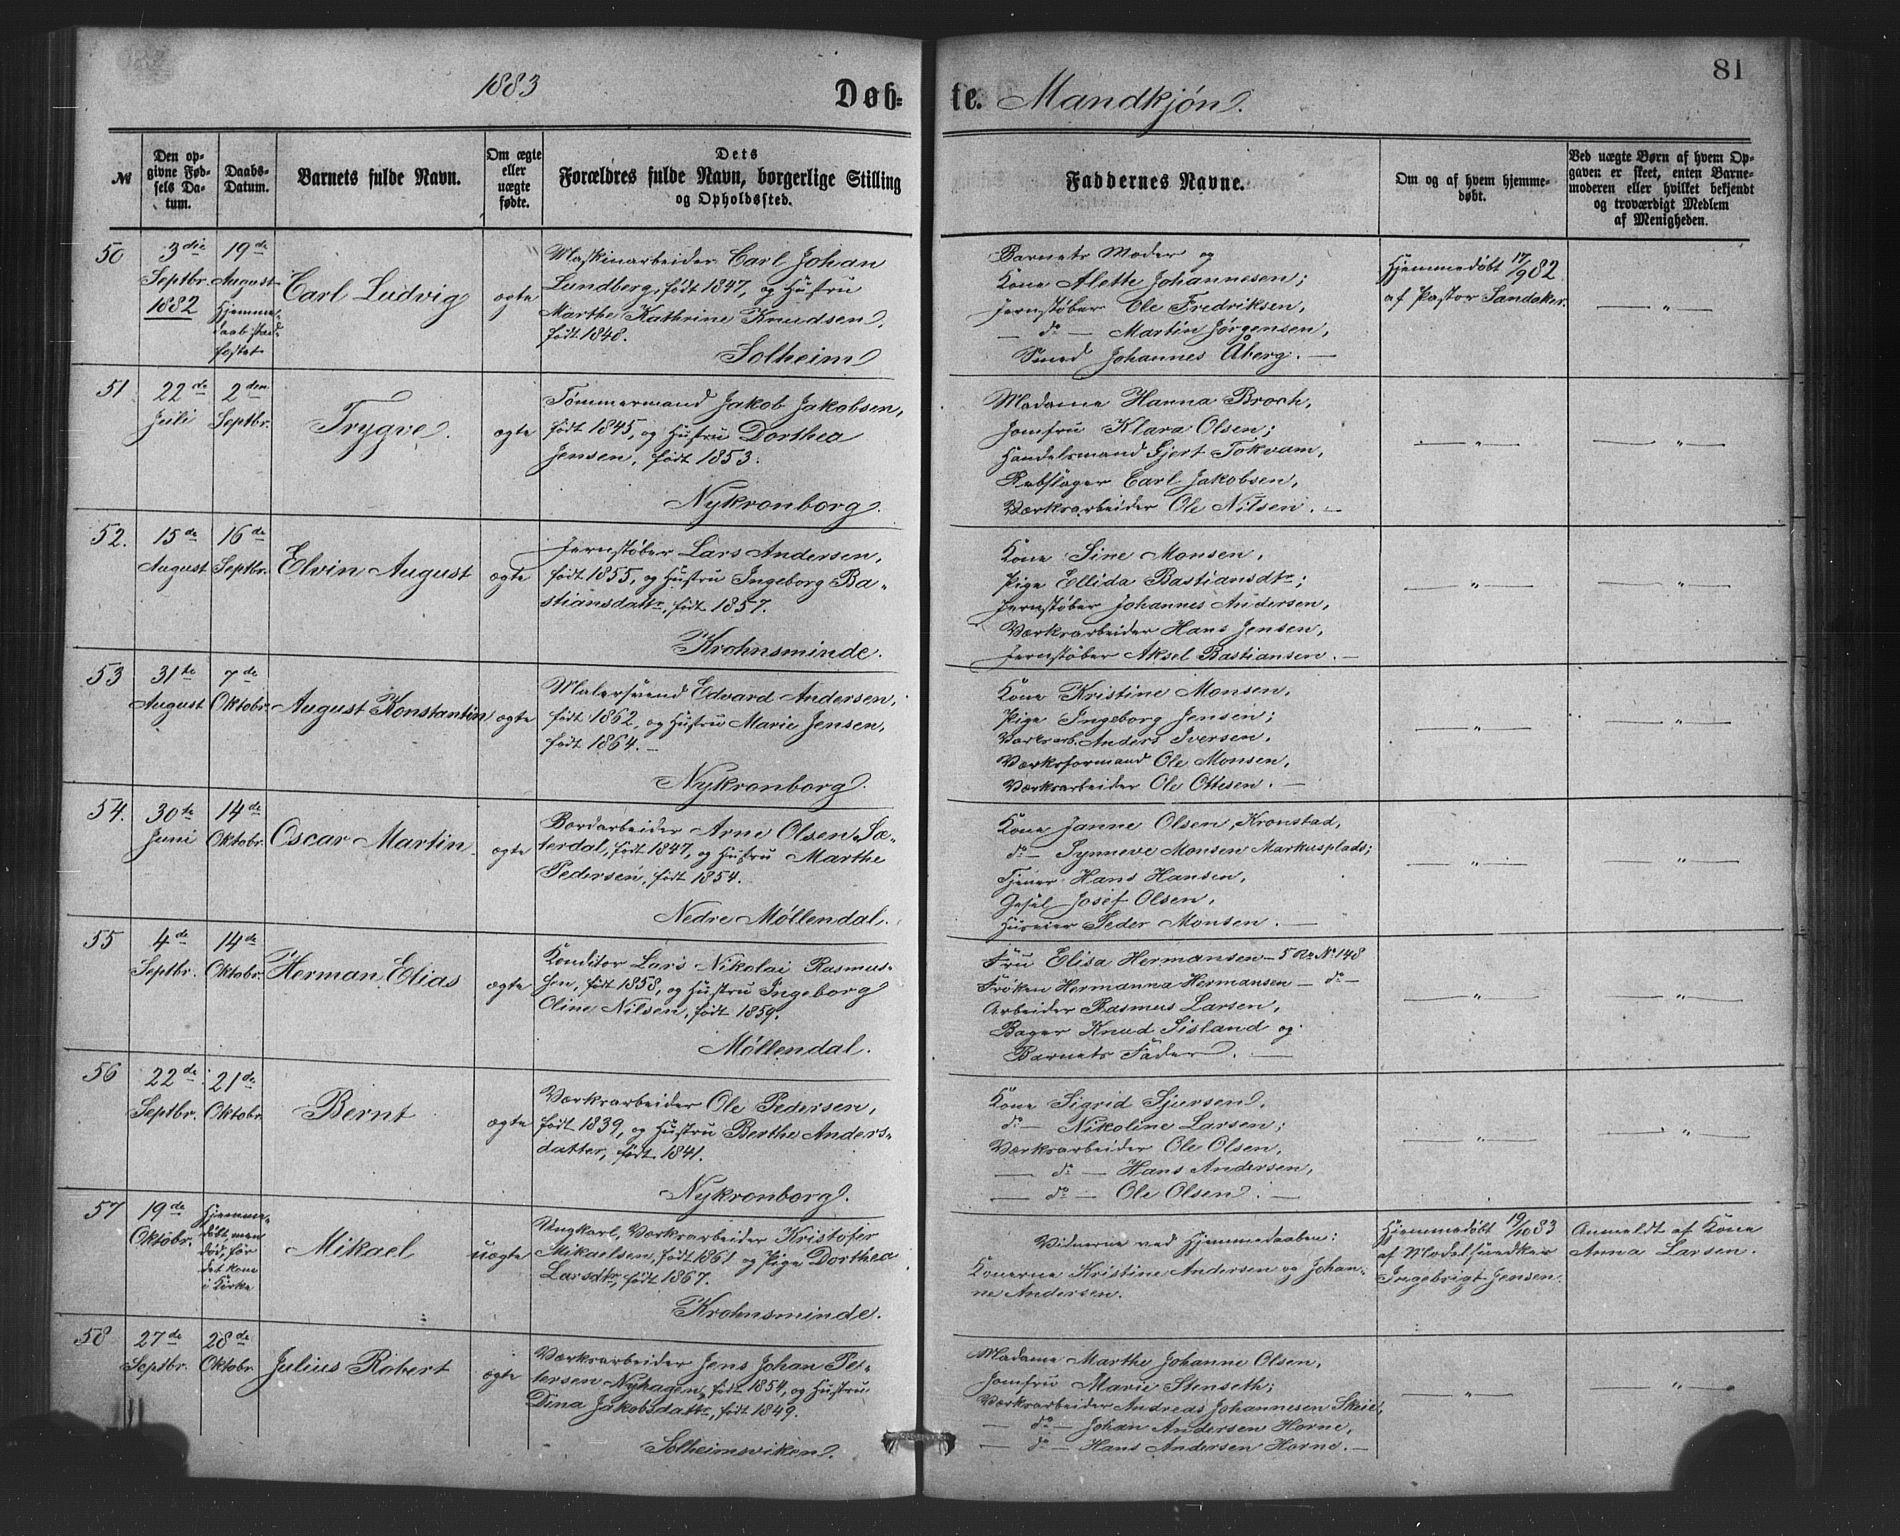 81
1883
Døb-
te. Mandkjøn.
№
Den op-
givne Fød-
sels Da-
tum.
Daabs-
Datum.
Barnets fulde Navn.
Om ægte
eller
uægte
fødte.
Dets
Forældres fulde Navn, borgerlige Stilling
og Opholdssted.
Faddernes Navne.
Om og af hvem hjemme-
døbt.
Ved uægte Børn af hvem Op-
gaven er skeet, enten Barne-
moderen eller hvilket bekjendt
og troværdigt Medlem
af Menigheden.
50
3die
Septbr.
1882
19de
August
Hjemme-
daab stad-
fæstet
Carl Ludvig
ægte
Maskinarbeider Carl Johan
Lundberg, født 1847, og Hustru
Marthe Kathrine Knudsen,
født 1848.
Solheim
Barnets Moder og
Kone Alette Johannesen;
Jernstøber Ole Fredriksen,
— do — Martin Jørgensen,
Smed Johannes Åberg. —
Hjemmedøbt 17/9 82
af Pastor Sandaker.
— " —
51
22de
Juli
2den
Septbr.
Trygve.
ægte
Tømmermand Jakob Jakobsen,
født 1845, og Hustru Dorthea
Jensen, født 1853.
Nykronborg.
Madame Hanna Broch,
Jomfru Klara Olsen;
Handelsmand Gjert Tokvam,
Rebslager Carl Jakobsen,
Værksarbeider Ole Nilsen. —
— " —
— " —
52.
15de
August
16de
Septbr.
Elvin August
ægte
Jernstøber Lars Andersen,
født 1855, og Hustru Ingeborg Ba-
stiansdattr, født 1857.
Krohnsminde.
Kone Sine Monsen,
Pige Ellida Bastiansdtr;
Jernstøber Johannes Andersen,
Værksarbeider Hans Jensen,
Jernstøber Aksel Bastiansen. —
— " —
— " —
53
31te
August
7de
Oktobr
August Konstantin
ægte
Malersvend Edvard Andersen,
født 1862, og Hustru Marie Jensen,
født 1864. —
Nykronborg.
Kone Kristine Monsen,
Pige Ingeborg Jensen;
Værksarb. Anders Iversen,
Værksformand Ole Monsen,
Værksarbeider Ole Ottesen. —
— " —
— " —
54.
30te
Juni
14de
Oktobr.
Oscar Martin
ægte
Bordarbeider Arne Olsen Sæ-
terdal, født 1847, og Hustru Marthe
Pedersen, født 1854.
Nedre Møllendal.
Kone Janne Olsen, Kronstad,
do — Synneve Monsen Markusplads;
Tjener Hans Hansen,
Gesel Josef Olsen,
Huseier Peder Monsen. —
— " —
— " —
55
4de
Septbr.
14de
Oktobr.
Herman Elias
ægte
Konditor Lars Nikolai Rasmus-
sen, født 1858, og Hustru Ingeborg
Oline Nilsen, født 1859.
Møllendal.
Fru Elisa Hermansen — 5 R. № 148
Frøken Hermanna Hermansen — do —
Arbeider Rasmus Larsen,
Bager Knud Sisland og
Barnets Fader. —
— " —
— " —
56
22de
Septbr.
21de
Oktobr.
Bernt
ægte
Værksarbeider Ole Pedersen,
født 1839, og Hustru Berthe Anders-
datter, født 1841.
Nykronborg.
Kone Sigrid Sjursen,
do — Nikoline Larsen;
Værksarbeider Ole Olsen,
— do — Hans Andersen,
— do — Ole Olsen. —
— " —
— " —
57
19de
Oktobr.
Hjemme-
døbt, men
død, før
det kom
i Kirke
Mikael
uægte
Ungkarl, Værksarbeider Kristofer
Mikaelsen, født 1861 og Pige Dorthea
Larsdtr, født 1867.
Krohnsminde.
Vidnerne ved Hjemmedaaben:
Konerne Kristine Andersen og Johan-
ne Andersen.
Hjemmedøbt 19/10 83
af Modelsnedker
Ingebrigt Jensen.
Anmeldt af Kone
Anna Larsen.
58
27de
Septbr.
28de
Oktobr
Julius Robert
ægte
Værksarbeider Jens Johan Pet-
tersen Nyhagen, født 1854, og Hustru
Dina Jakobsdattr, født 1849.
Solheimsviken.
Madame Marthe Johanne Olsen,
Jomfru Marie Stenseth;
Værksarbeider Andreas Johannesen Skeie,
— do — Johan Andersen Horne,
— do — Hans Andersen Horne. —
— " —
— " —